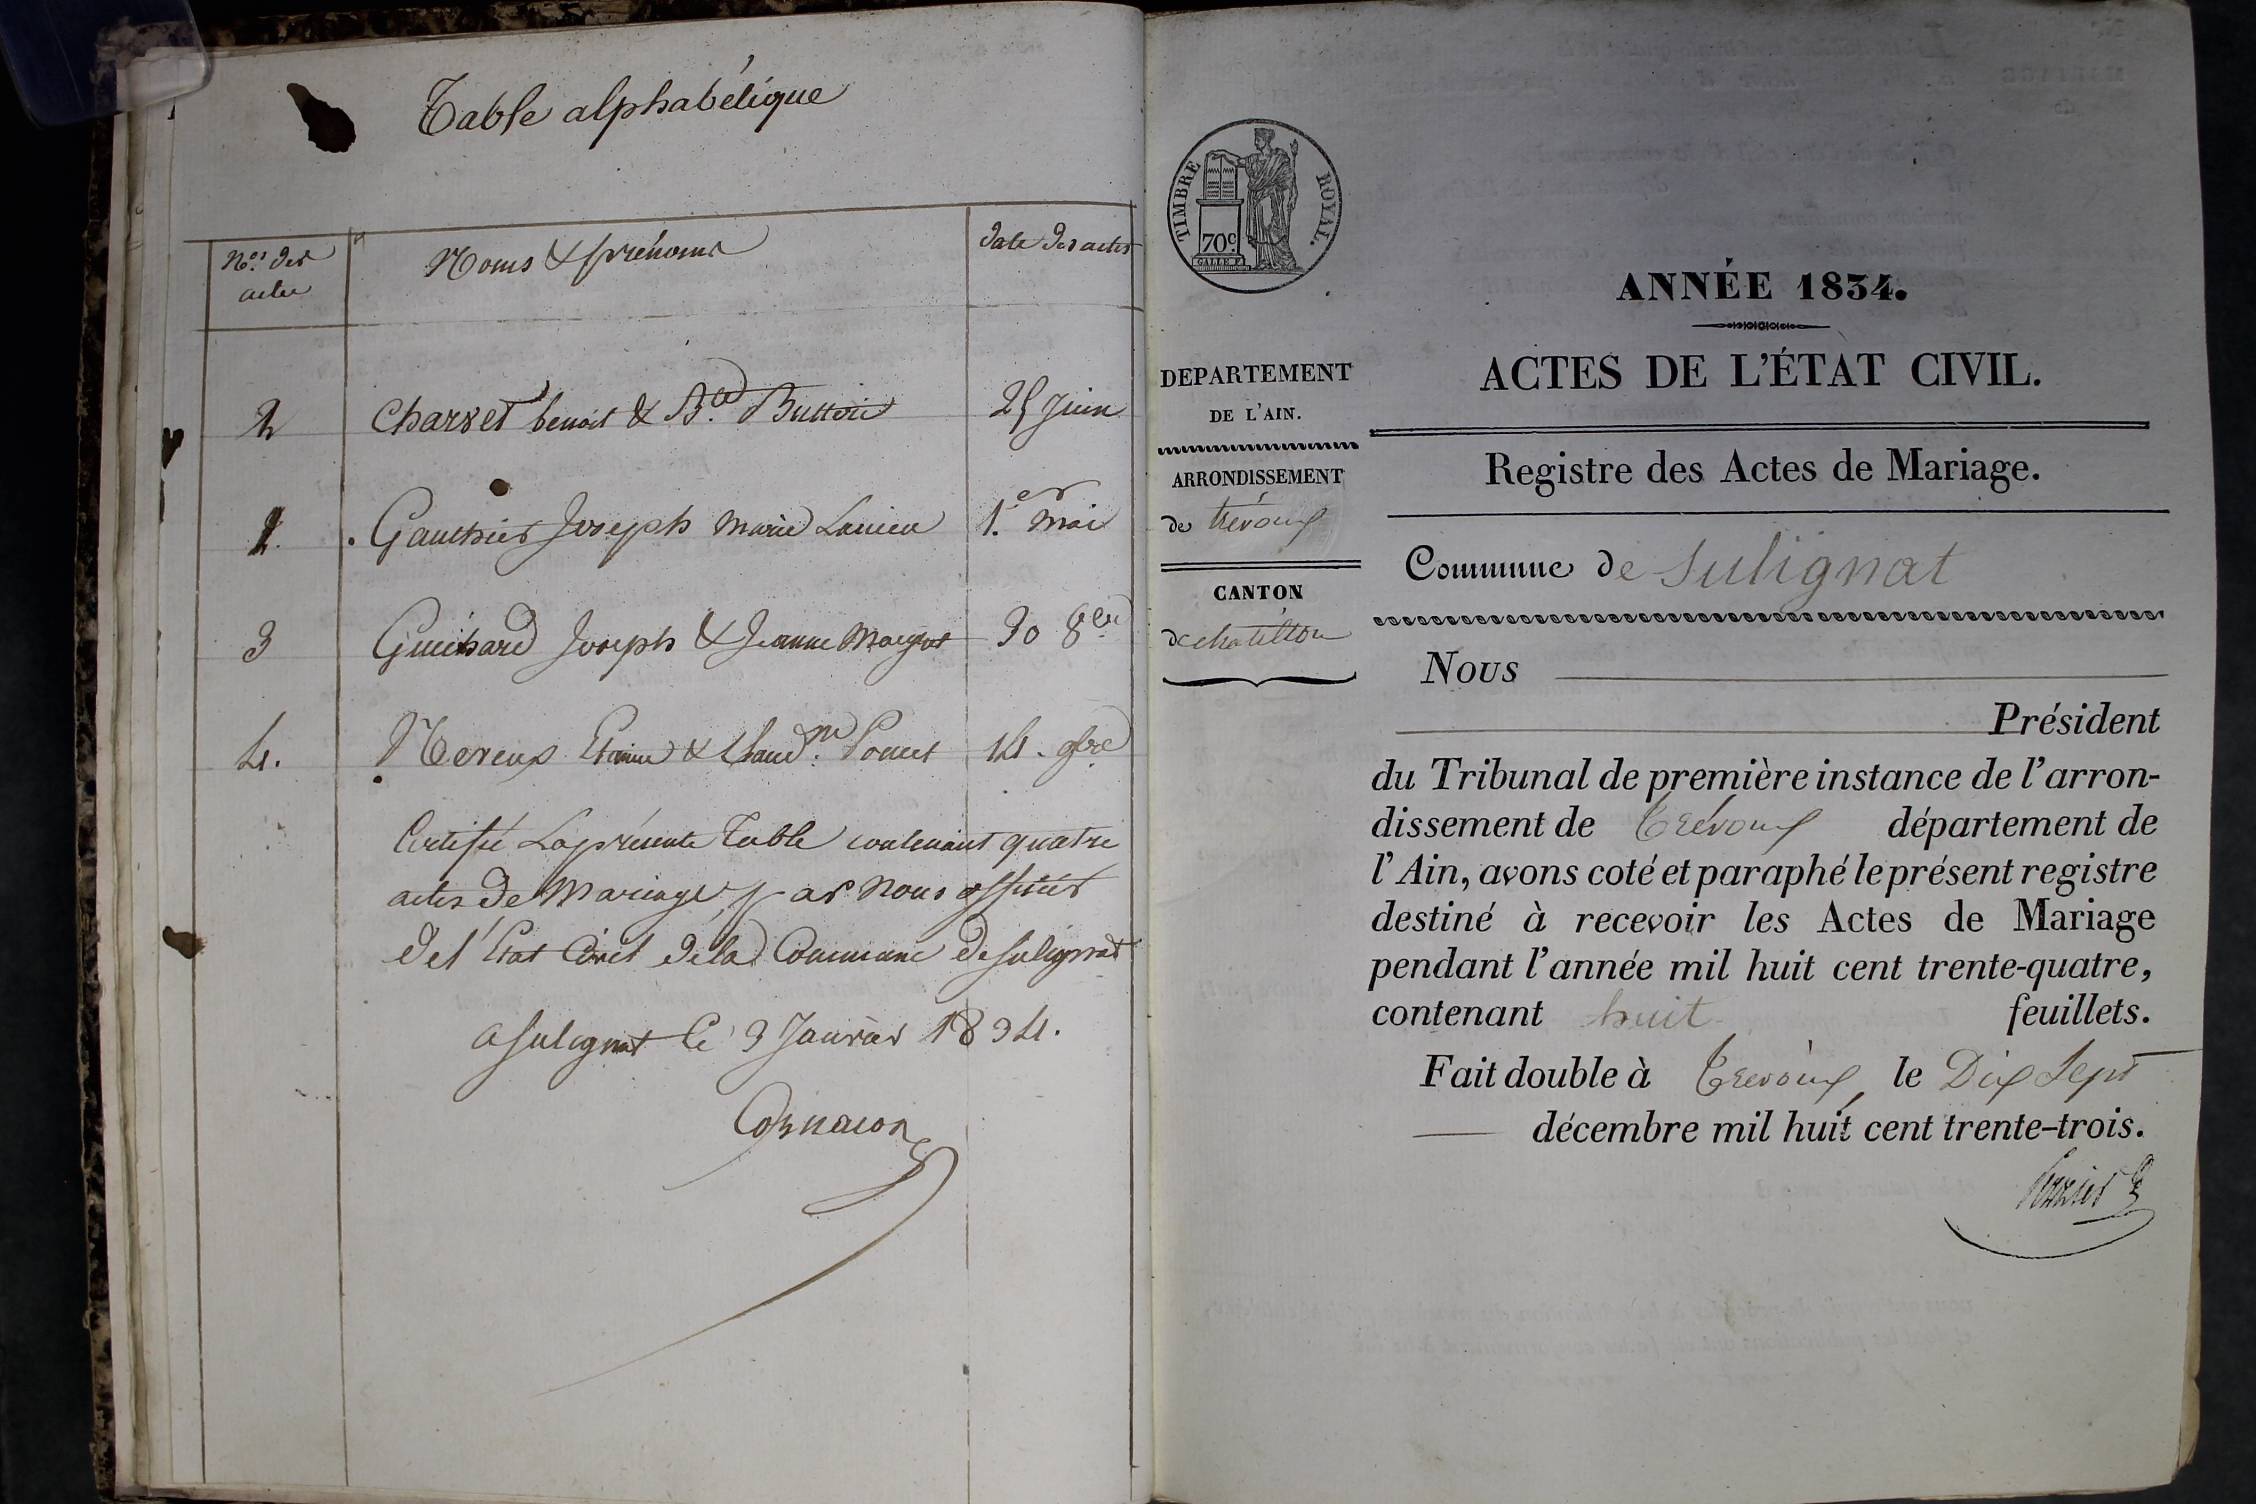 Table alphabétique
Nos. des
actes
Noms & prénoms
date des actes
2 Charvet benoit & Bte. Buttoir 25 Juin
1. Gauthier Joseph Marie Lucien 1.er Mai
3 Guichard Joseph & Jeanne 30 8bre
4. Etienne & Claud.ne Poncet 14. 9bre
Certifié La présente Table contenant quatre
actes de Mariage par Nous officier
de l'Etat Civil de la Commune de Sulignat
a Sulignat le 3 Janvier 1834.
TIMBRE ROYAL.
70c.
DEPARTEMENT
DE L'AIN.
ARRONDISSEMENT
de trévoux
CANTON
de chatillon
ANNÉE 1834.
ACTES DE L'ÉTAT CIVIL.
Registre des Actes de Mariage.
Commune de Sulignat
Nous
Président
du Tribunal de première instance de l'arron-
dissement de Trévoux département de
l'Ain, avons coté et paraphé le présent registre
destiné à recevoir les Actes de Mariage
pendant l'année mil huit cent trente-quatre,
contenant huit feuillets.
Fait double à Trévoux, le Dix Sept
décembre mil huit cent trente-trois.